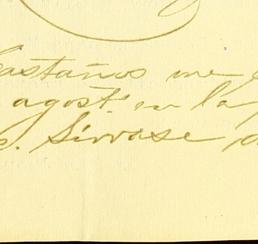 Castaños me
agost. en la
Sírvase